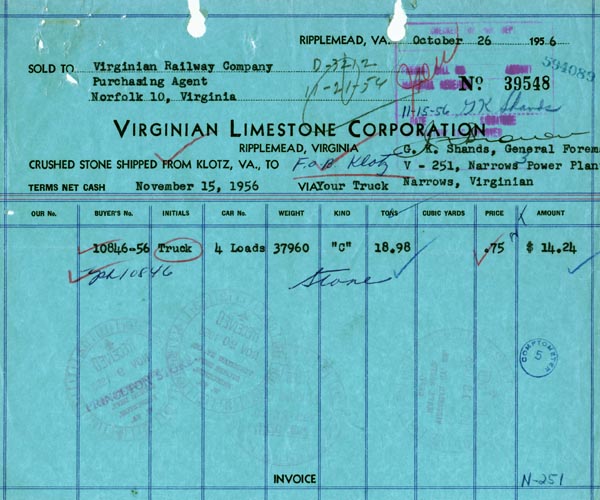 RIPPLEMEAD, VA. October 26 1956
594089
SOLD TO Virginian Railway Company
Purchasing Agent
Norfolk 10, Virginia
D-3212
11-21-56
No. 39548
11-15-56 G K Shands
VIRGINIAN LIMESTONE CORPORATION
RIPPLEMEAD, VIRGINIA
G. K. Shands, General Forem
CRUSHED STONE SHIPPED FROM KLOTZ, VA., TO F.O.B Klotz V - 251, Narrows Power Plan
TERMS NET CASH November 15, 1956 VIA Your Truck Narrows, Virginian
OUR No. BUYER'S No. INITIALS CAR No. WEIGHT KIND TONS CUBIC YARDS PRICE AMOUNT
10846-56 Truck 4 Loads 37960 "C" 18.98 .75 $ 14.24
10846 Stone
COMPTOMETER
5
INVOICE
N-251